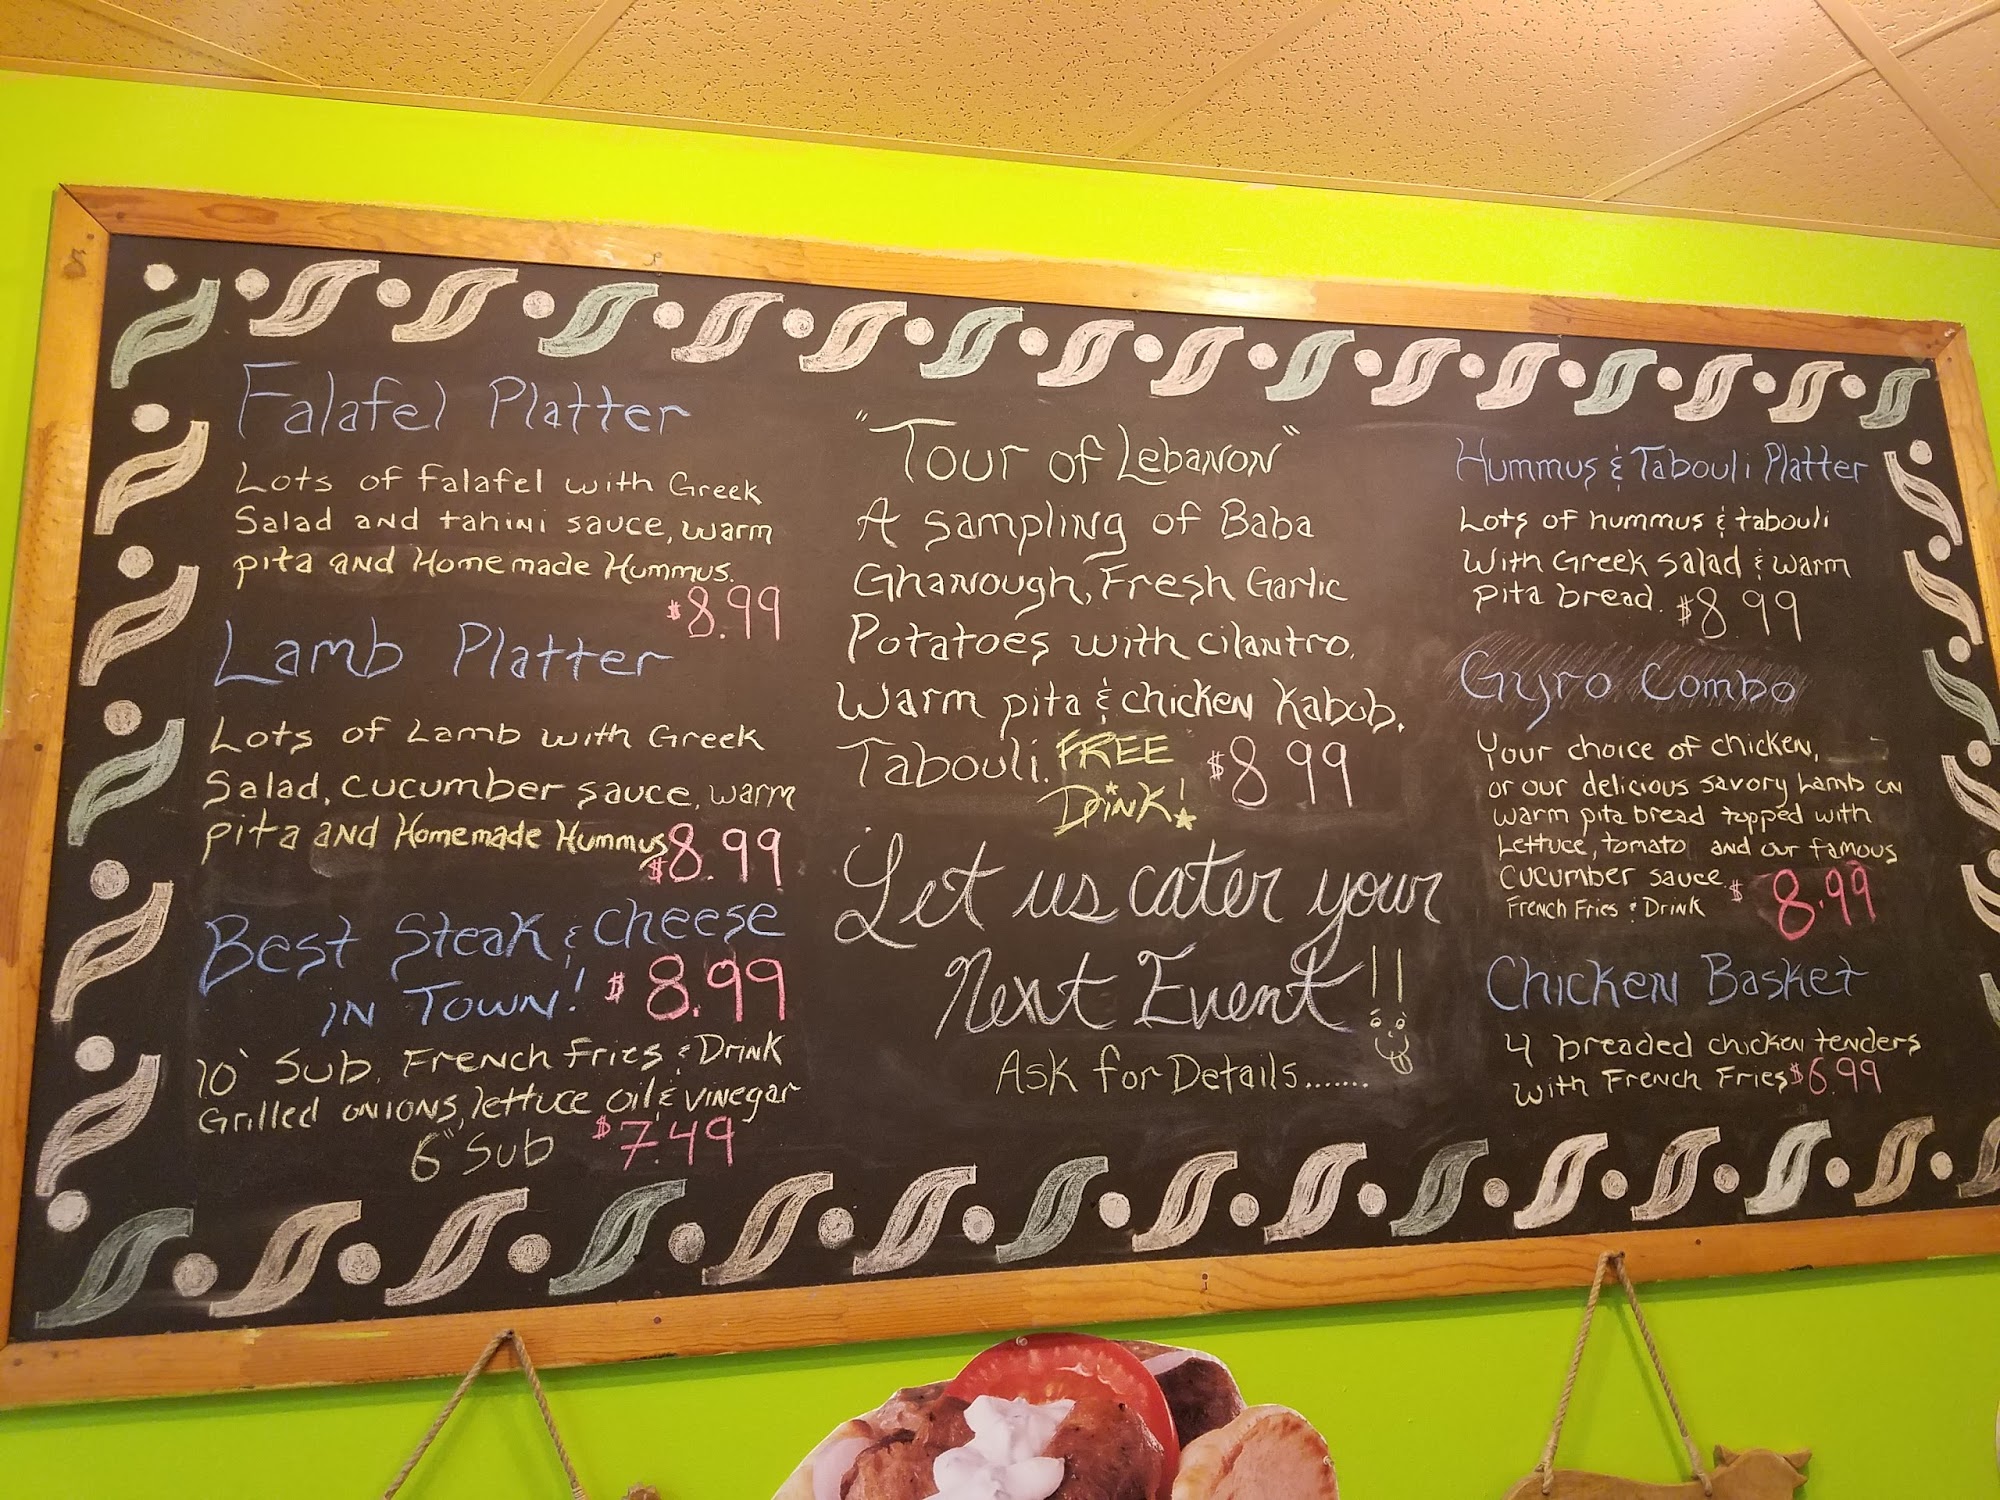 Falafel Platter
Lots of Falafel with Greek
Salad and tahini sauce, warm
pita and Homemade Hummus.
$8.99
Lamb Platter
Lots of Lamb with Greek
Salad, cucumber sauce, warm
pita and Homemade Hummus
$8.99
Best Steak & Cheese
in Town! $8.99
10" Sub, French Fries & Drink
Grilled onions, lettuce oil & vinegar
6" Sub $7.49
"Tour of Lebanon"
A sampling of Baba
Ghanough, Fresh Garlic
Potatoes with cilantro,
Warm pita & chicken Kabob,
Tabouli. FREE $8.99
Drink!
Let us cater your
Next Event!!
Ask for Details.......
Hummus & Tabouli Platter
Lots of hummus & tabouli
With Greek salad & warm
pita bread. $8.99
Gyro Combo
Your choice of chicken,
or our delicious savory Lamb on
warm pita bread topped with
Lettuce, tomato and our famous
cucumber sauce.
French Fries & Drink $8.99
Chicken Basket
4 breaded chicken tenders
with French Fries $6.99